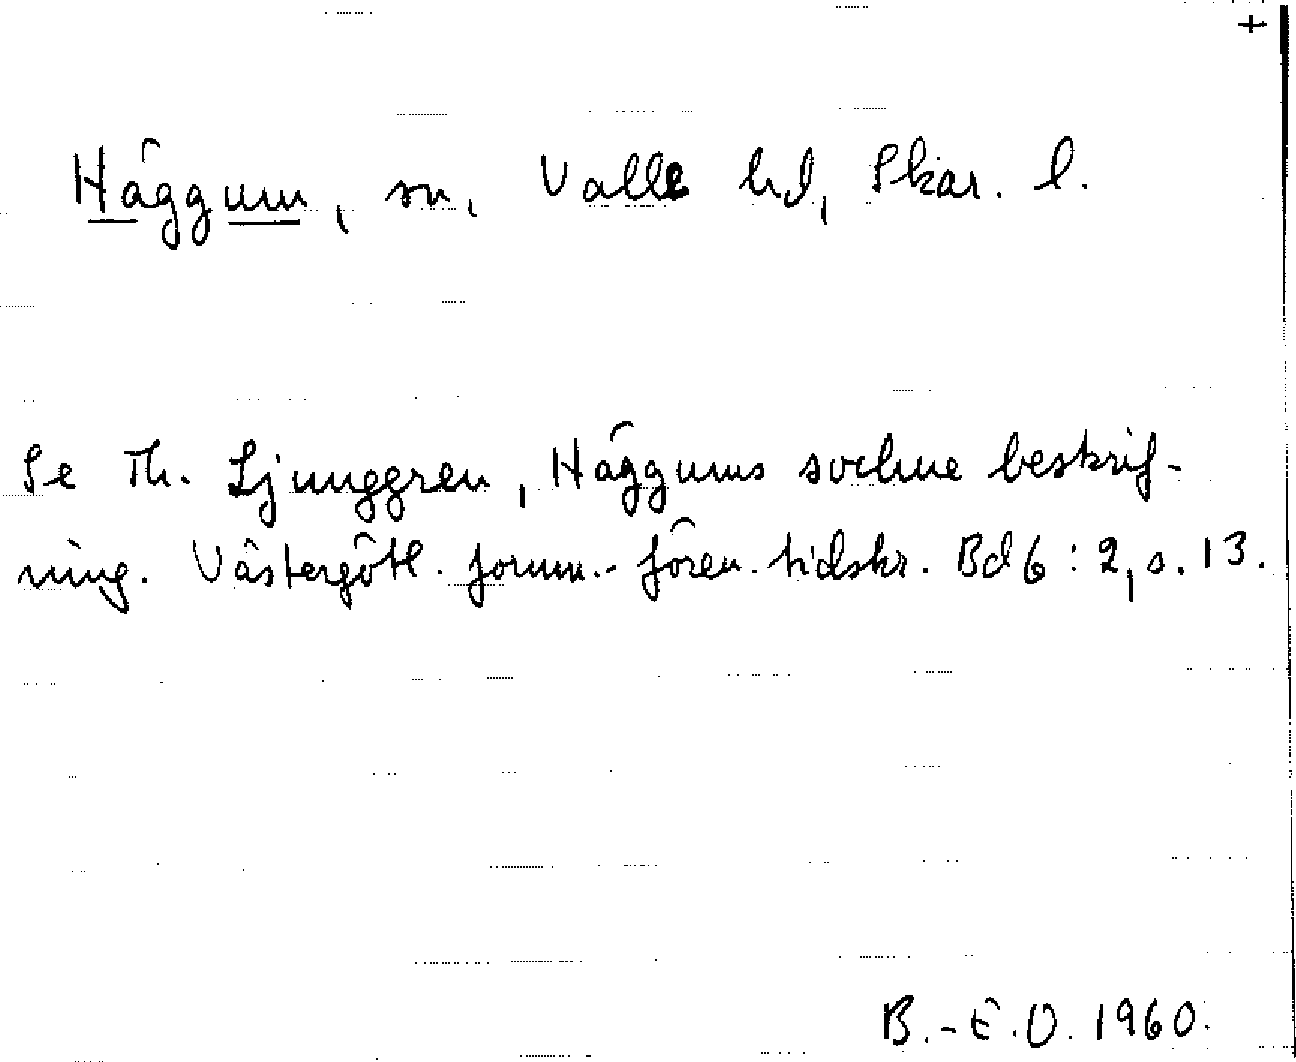 +
Häggum, sn, Valle hd, Skar. l.
Se Th. Ljunggren, Häggums sockne beskrif-
ning. Västergötl. fornm.-fören. tidskr. Bd 6:2, s. 13.
B.-E.O. 1960.